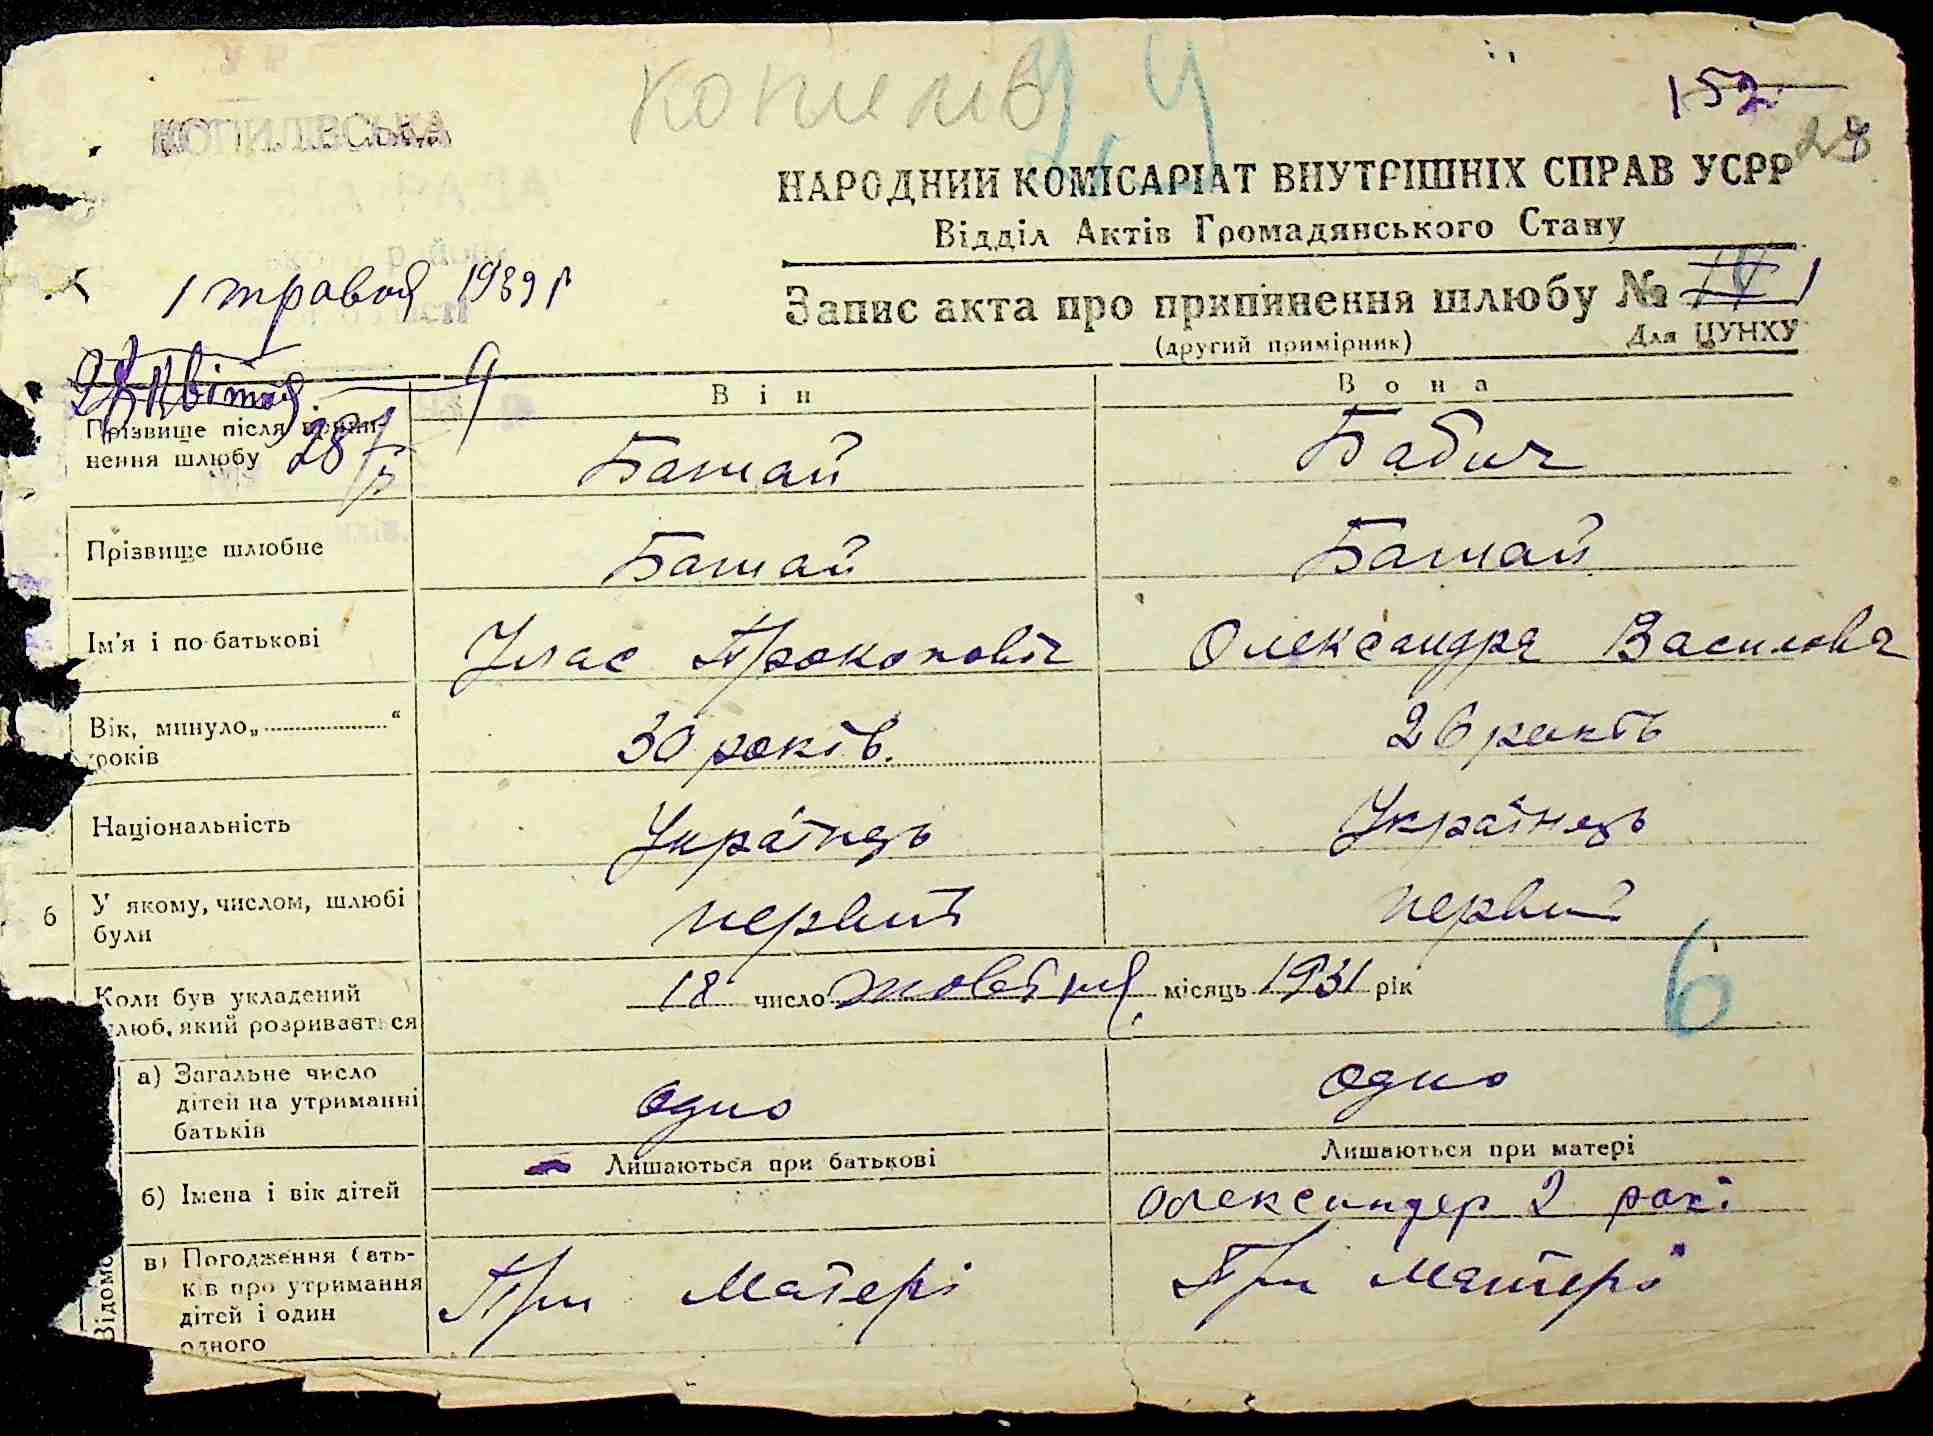 Копилів
2, 4
152
28
КОПИЛІВСЬКА
НАРОДНИЙ КОМІСАРІАТ ВНУТРІШНІХ СПРАВ УСРР
Відділ Актів Громадянського Стану
1 травня 1939 р
Запис акта про припинення шлюбу № IV 1
(другий примірник) Для ЦУНХУ
28 квітня 9
Він Вона
Прізвище після припи-
нення шлюбу
28/IV
Баштай Бабич
Прізвище шлюбне Баштай Баштай
Ім'я і по-батькові Улас Прокопович Олександра Василовна
Вік, минуло „ “
років
30 років. 26 років
Національність Українець Українець
6 У якому, числом, шлюбі
були
первий первий
6
Коли був укладений
шлюб, який розривається
18 число жовтня місяць 1931 рік
а) Загальне число
дітей на утриманні
батьків
одно одно
Лишаються при батькові Лишаються при матері
б) Імена і вік дітей Олександер 2 рокі
в) Погодження бать-
ків про утримання
дітей і один
одного
При Матері При Матері
Відомо